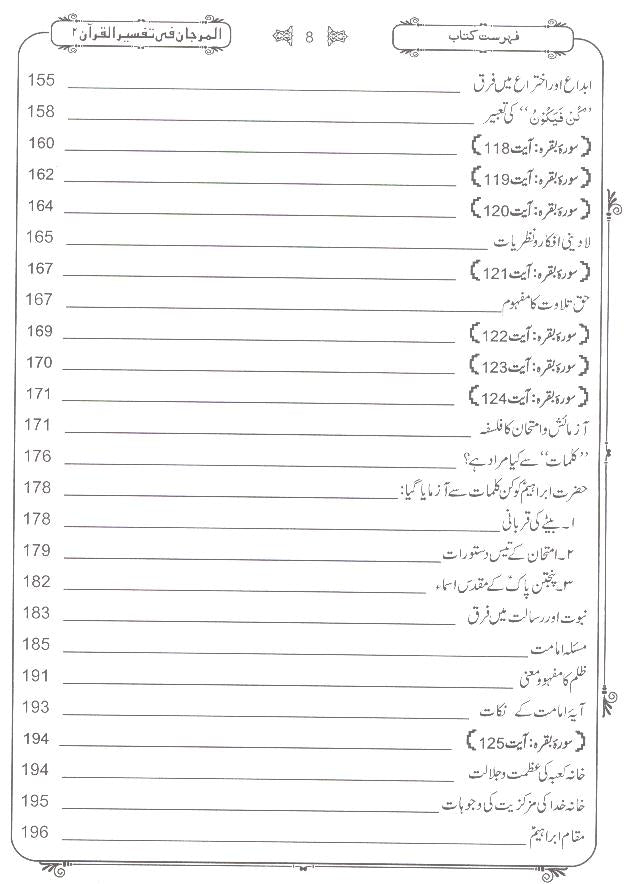 المرجان فی تفسیر القرآن ۲ 8 فہرست کتاب
ابداع اور اختراع میں فرق 155
”كُنْ فَيَكُوْنُ“ کی تعبیر 158
﴿سورۂ بقرہ: آیت 118﴾ 160
﴿سورۂ بقرہ: آیت 119﴾ 162
﴿سورۂ بقرہ: آیت 120﴾ 164
لادینی افکار و نظریات 165
﴿سورۂ بقرہ: آیت 121﴾ 167
حق تلاوت کا مفہوم 167
﴿سورۂ بقرہ: آیت 122﴾ 169
﴿سورۂ بقرہ: آیت 123﴾ 170
﴿سورۂ بقرہ: آیت 124﴾ 171
آزمائش و امتحان کا فلسفہ 171
”کلمات“ سے کیا مراد ہے؟ 176
حضرت ابراہیمؑ کو کن کلمات سے آزمایا گیا: 178
۱۔ بیٹے کی قربانی 178
۲۔ امتحان کے تیس دستورات 179
۳۔ پنجتن پاکؑ کے مقدس اسماء 182
نبوت اور رسالت میں فرق 183
مسئلہ امامت 185
ظلم کا مفہوم و معنی 191
آیۂ امامت کے نکات 193
﴿سورۂ بقرہ: آیت 125﴾ 194
خانہ کعبہ کی عظمت و جلالت 194
خانہ خدا کی مرکزیت کی وجوہات 195
مقام ابراہیمؑ 196